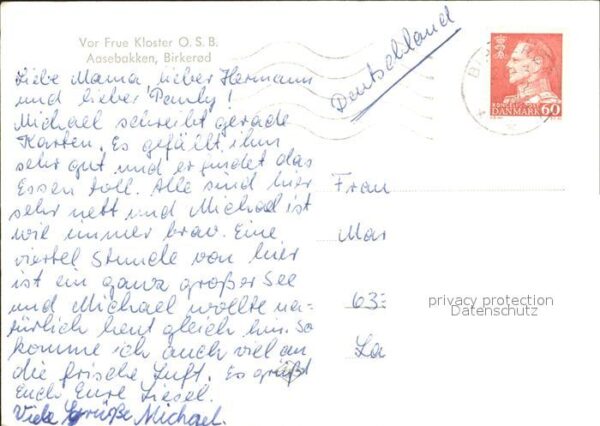 Vor Frue Kloster O. S. B.
Aasebakken, Birkerød
Liebe Mama lieber Hermann
und lieber Pauly!
Michael schreibt gerade
Karten. Es gefällt ihm
sehr gut und er findet das
Essen toll. Alle sind hier
sehr nett und Michael ist
wie immer brav. Eine
viertel Stunde von hier
ist ein ganz großer See
und Michael wollte na-
türlich heut gleich hin. So
komme ich auch viel an
die frische Luft. Es grüßt
Euch Eure Liesel.
Viele Grüße Michael.
Deutschland
DANMARK 60
Frau
Mar
63
La
privacy protection
Datenschutz